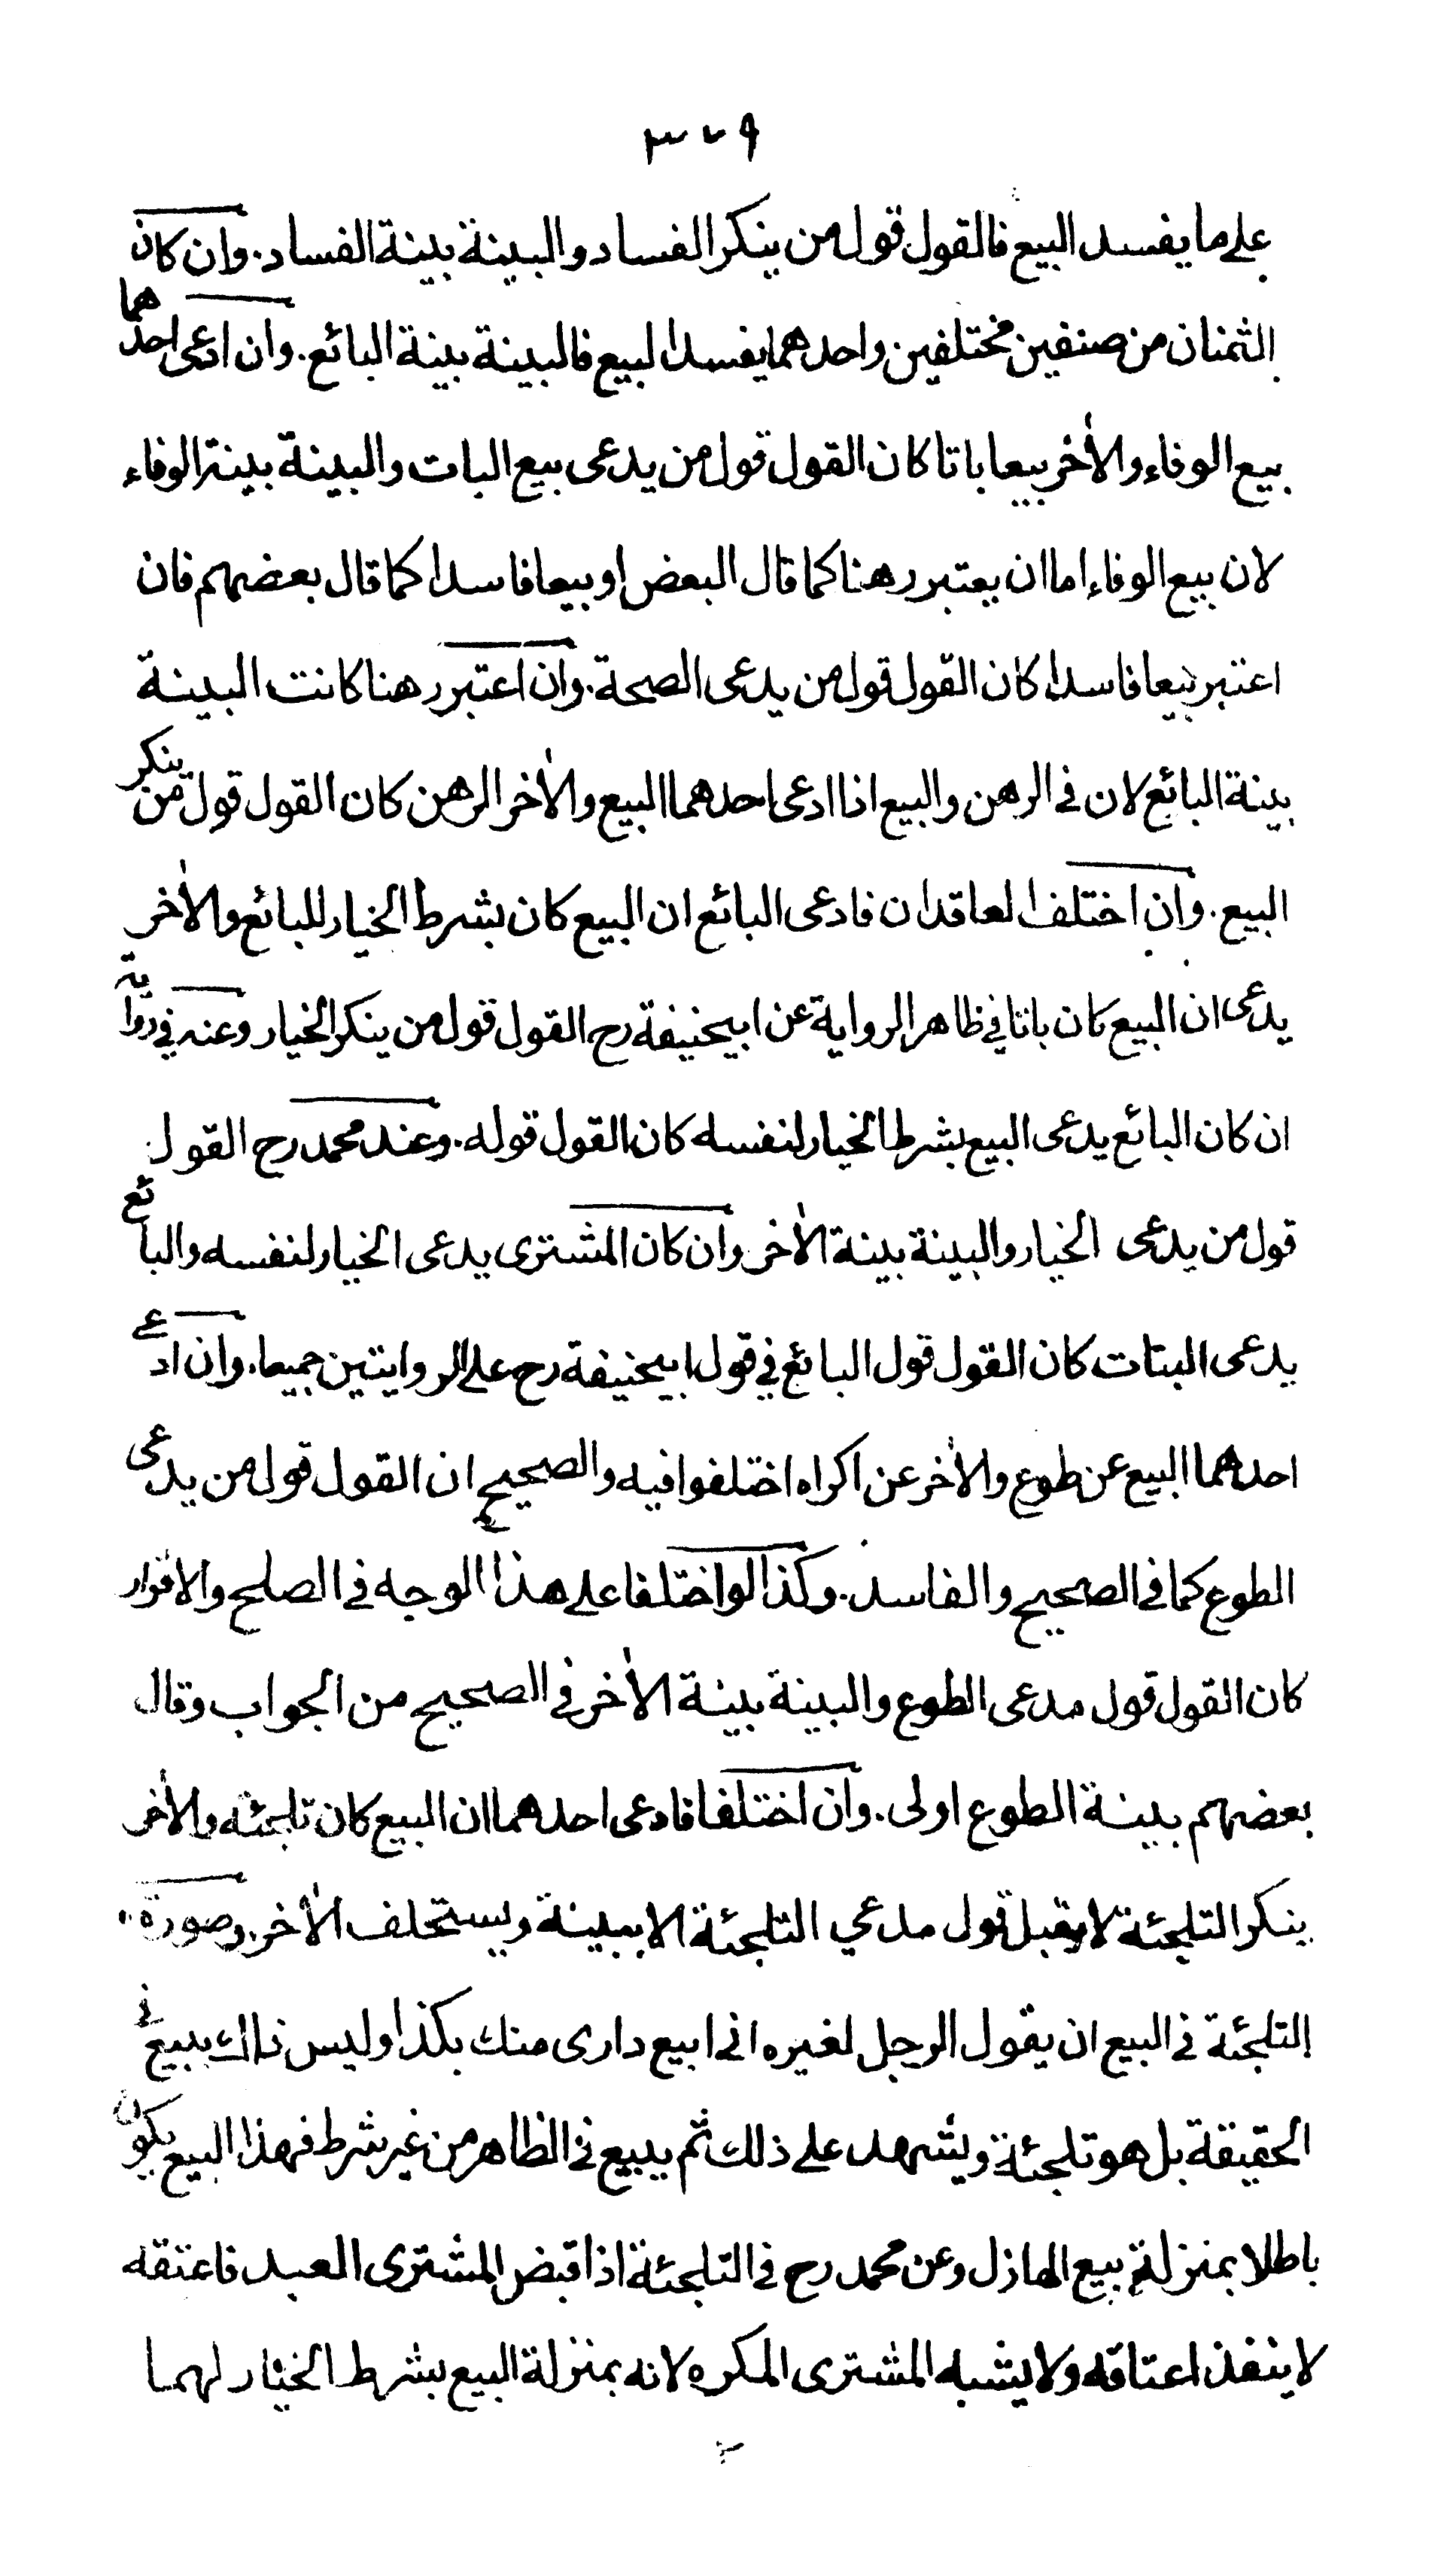 ٣٧٩
على ما يفسد البيع فالقول قول من ينكر الفساد والبينة بينة الفساد. وان كان
الثمنان من صنفين مختلفين واحدهما يفسد البيع فالبينة بينة البائع. وان ادعى احدهما
بيع الوفاء والأخر بيعا باتا كان القول قول من يدعى بيع البات والبينة بينة الوفاء
لان بيع الوفاء اما ان يعتبر رهنا كما قال البعض او بيعا فاسدا كما قال بعضهم فان
اعتبر بيعا فاسدا كان القول قول من يدعى الصحة. وان اعتبر رهنا كانت البينة
بينة البائع لان فى الرهن والبيع اذا ادعى احدهما البيع والأخر الرهن كان القول قول من ينكر
البيع. وان اختلف العاقدان فادعى البائع ان البيع كان بشرط الخيار للبائع والأخر
يدعى ان البيع كان باتا في ظاهر الرواية عن ابيحنيفة رح القول قول من ينكر الخيار وعنه في رواية
ان كان البائع يدعى البيع بشرط الخيار لنفسه كان القول قوله. وعند محمد رح القول
قول من يدعى الخيار والبينة بينة الأخر وان كان المشترى يدعى الخيار لنفسه والبائع
يدعى البتات كان القول قول البائع في قول ابيحنيفة رح على الروايتين جميعا. وان ادعى
احدهما البيع عن طوع والأخر عن اكراه اختلفوا فيه والصحيح ان القول قول من يدعى
الطوع كما فى الصحيح والفاسد. وكذا لو اختلفا على هذا الوجه فى الصلح والاقرار
كان القول قول مدعى الطوع والبينة بينة الأخر فى الصحيح من الجواب وقال
بعضهم بينة الطوع اولى. وان اختلفا فادعى احدهما ان البيع كان تلجئه والأخر
ينكر التلجئة لا يقبل قول مدعي التلجئة الا ببينة ويستحلف الأخر. وصورة
التلجئة فى البيع ان يقول الرجل لغيره انى ابيع دارى منك بكذا وليس ذالك ببيع فى
الحقيقة بل هو تلجئة ويشهد على ذلك ثم يبيع فى الظاهر من غير شرط فهذا البيع يكون
باطلا بمنزلة بيع الهازل وعن محمد رح فى التلجئة اذا قبض المشترى العبد فاعتقه
لا ينفذ اعتاقه ولا يشبه المشترى المكره لانه بمنزلة البيع بشرط الخيار لهما